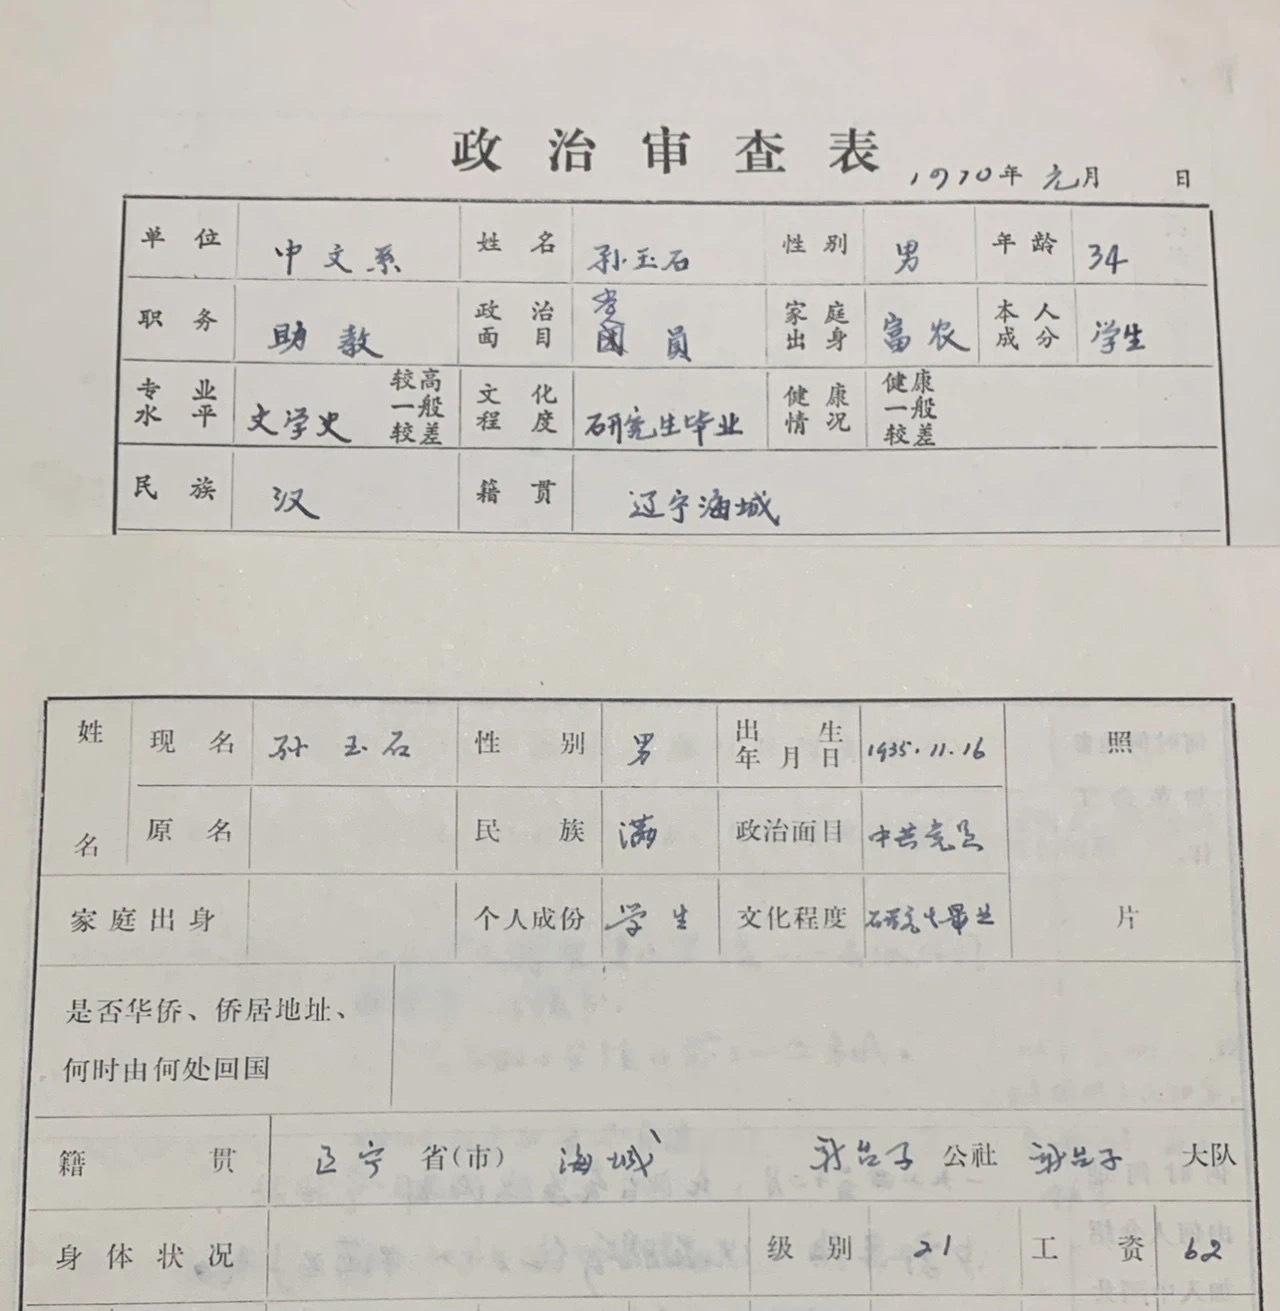 政治审查表
1970年 元月 日
单位 中文系 姓名 孙玉石 性别 男 年龄 34
职务 助教 政治面目 党团员 家庭出身 富农 本人成分 学生
专业水平 文学史 较高 一般 较差 文化程度 研究生毕业 健康情况 健康 一般 较差
民族 汉 籍贯 辽宁海城
姓名 现名 孙玉石 性别 男 出生年月日 1935.11.16 照片
原名 民族 满 政治面目 中共党员
家庭出身 个人成份 学生 文化程度 研究生毕业
是否华侨、侨居地址、
何时由何处回国
籍贯 辽宁 省(市) 海城 新台子 公社 新台子 大队
身体状况 级别 21 工资 62